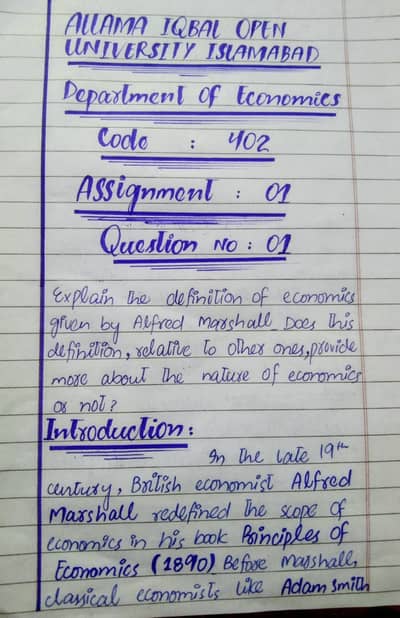 ALLAMA IQBAL OPEN
UNIVERSITY ISLAMABAD
Department Of Economics
Code : 402
Assignment : 01
Question No : 01
Explain the definition of economics
given by Alfred Marshall. Does this
definition, relative to other ones, provide
more about the nature of economics
or not?
Introduction:
In the late 19th
century, British economist Alfred
Marshall redefined the scope of
economics in his book Principles of
Economics (1890) Before Marshall,
classical economists like Adam Smith